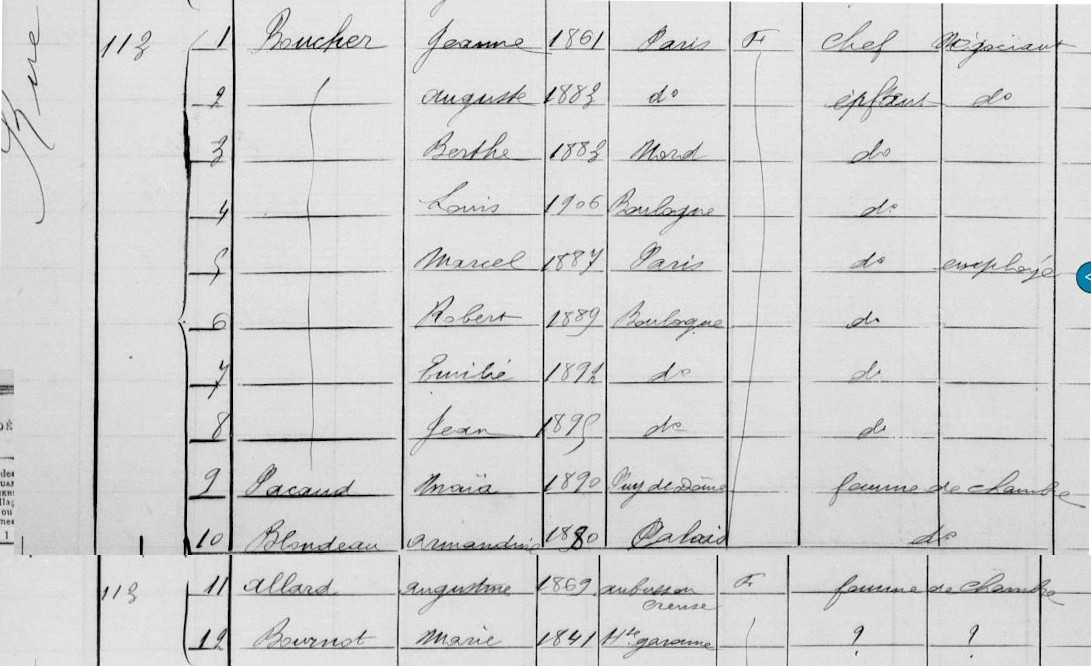 Rue
113 1 Boucher Jeanne 1861 Paris F. chef Négociant
2 Auguste 1883 do enfant do
3 Berthe 1883 Nord do
4 Louis 1906 Boulogne do
5 Marcel 1887 Paris do employé
6 Robert 1889 Boulogne do
7 Emilie 1892 do do
8 Jean 1895 do do
9 Pacaud Maria 1890 Puy de Dôme femme de chambre
10 Blondeau Armandine 1880 Calais do
113 11 Allard Augustine 1869 Aubusson F. femme de chambre
Creuse
12 Bournot Marie 1841 Hte garonne ? ?